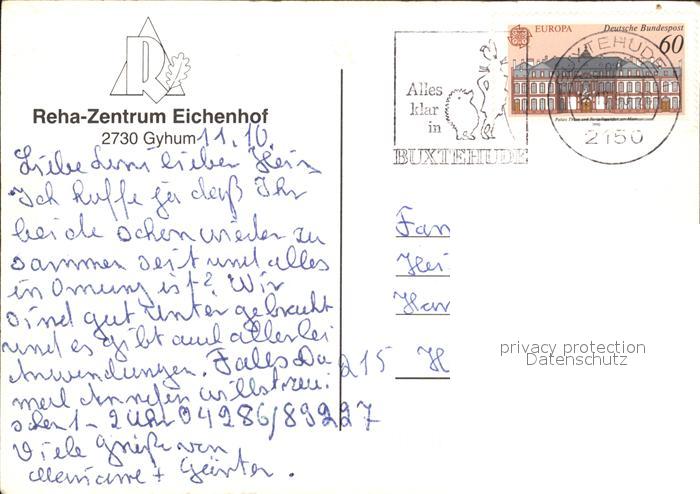 Reha-Zentrum Eichenhof
2730 Gyhum
11.10
Liebe lieber Hein
Ich hoffe ja daß Ihr
beide schon wieder zu
sammen seit und alles
in Ornung ist? Wir
sind gut unter gebracht
und es gibt auch allerlei
Anwendungen. Falls Du
mal Anrufen willst zwi
schen 1 - 2 Uhr 04286/89227
Viele Grüße von
Marianne + Günter.
Alles
klar
in
BUXTEHUDE
EUROPA Deutsche Bundespost
60
BUXTEHUDE
2150
Fam
Hei
Har
215 H
privacy protection
Datenschutz